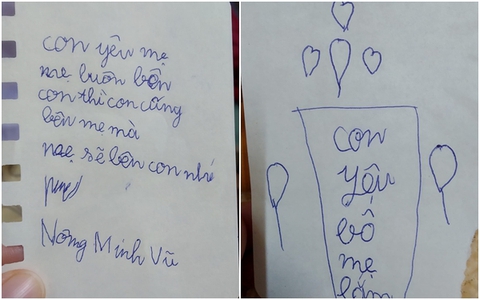 con yêu mẹ
mẹ luôn bên
con thì con cũng
bên mẹ mà
mẹ sẽ bên con nhé
Nông Minh Vũ
con
yêu
bố
mẹ
lắm